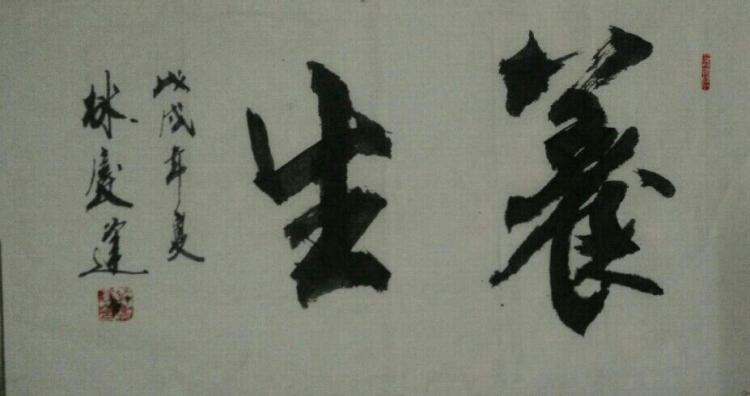 養生
戊戌年夏
林慶運